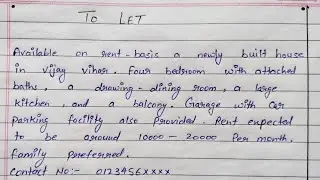 To LET
Available on rent-basis a newly built house
in vijay vihar. four bedroom with attached
baths, a drawing-dining room, a large
kitchen, and a balcony. Garage with Car
parking facility also provided. Rent expected
to be around 10000 - 20000 Per month.
family preferred.
Contact No:- 0123456xxxx